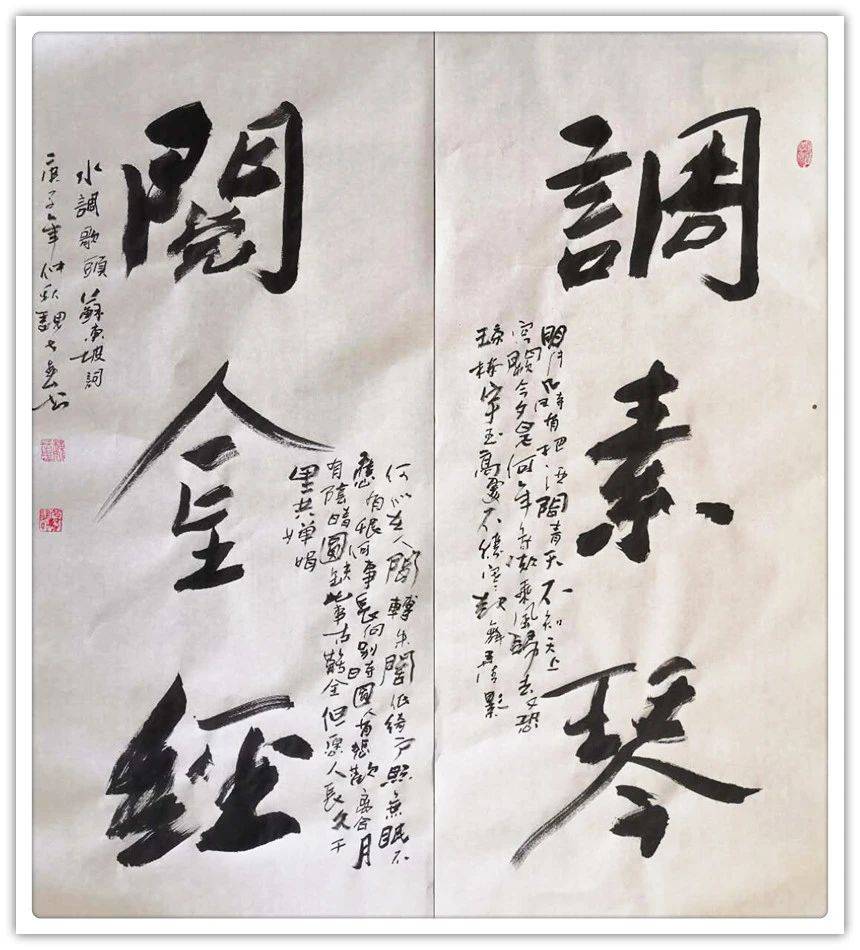 調素琴
明月几時有把酒問青天不知天上
宮闕今夕是何年我欲乘風歸去又恐
瓊樓宇玉高處不勝寒起舞弄清影
閱金經
何似在人間轉朱閣低綺户照無眠不
應有恨何事長向別時圓人有悲歡離合月
有陰晴圓缺此事古難全但愿人長久千
里共嬋娟
水調歌頭 蘇東坡詞
庚子年仲秋魏